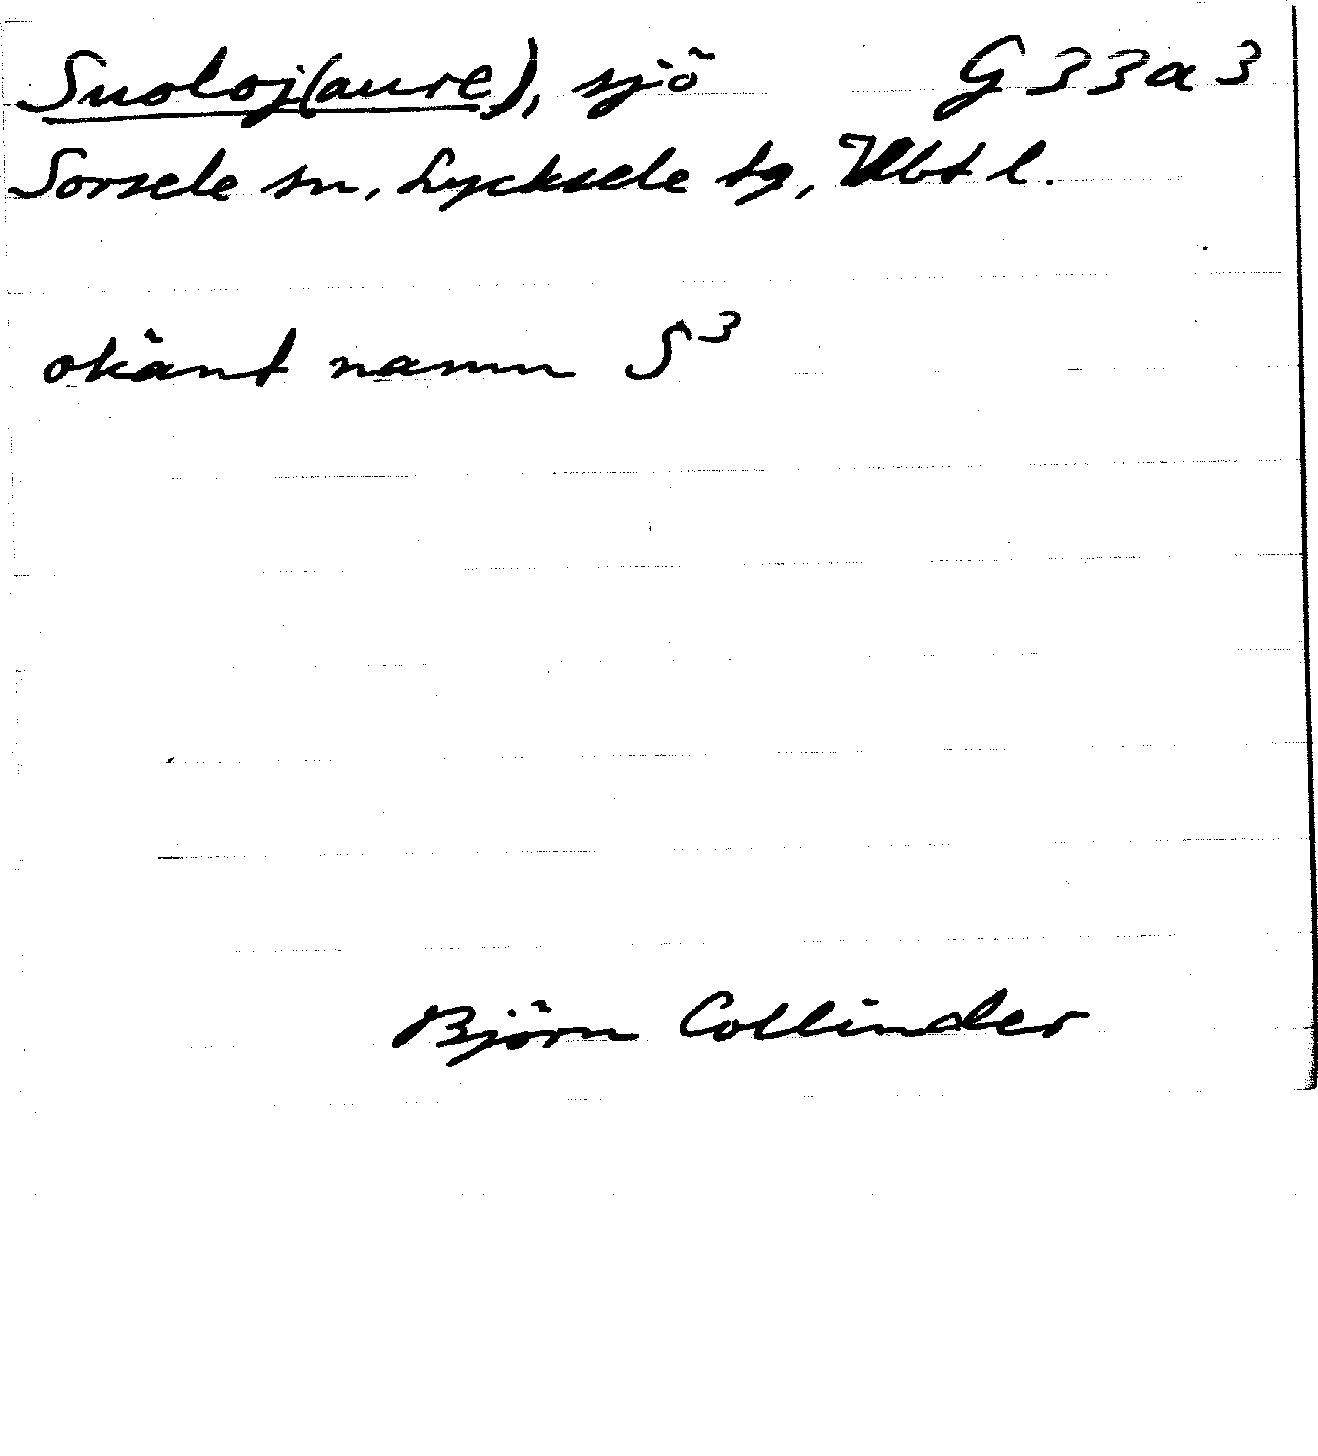 Suoloj(aure), sjö G 33 a 3
Sorsele sn, Lycksele tg, Vbt l.
okänt namn S³
Björn Collinder